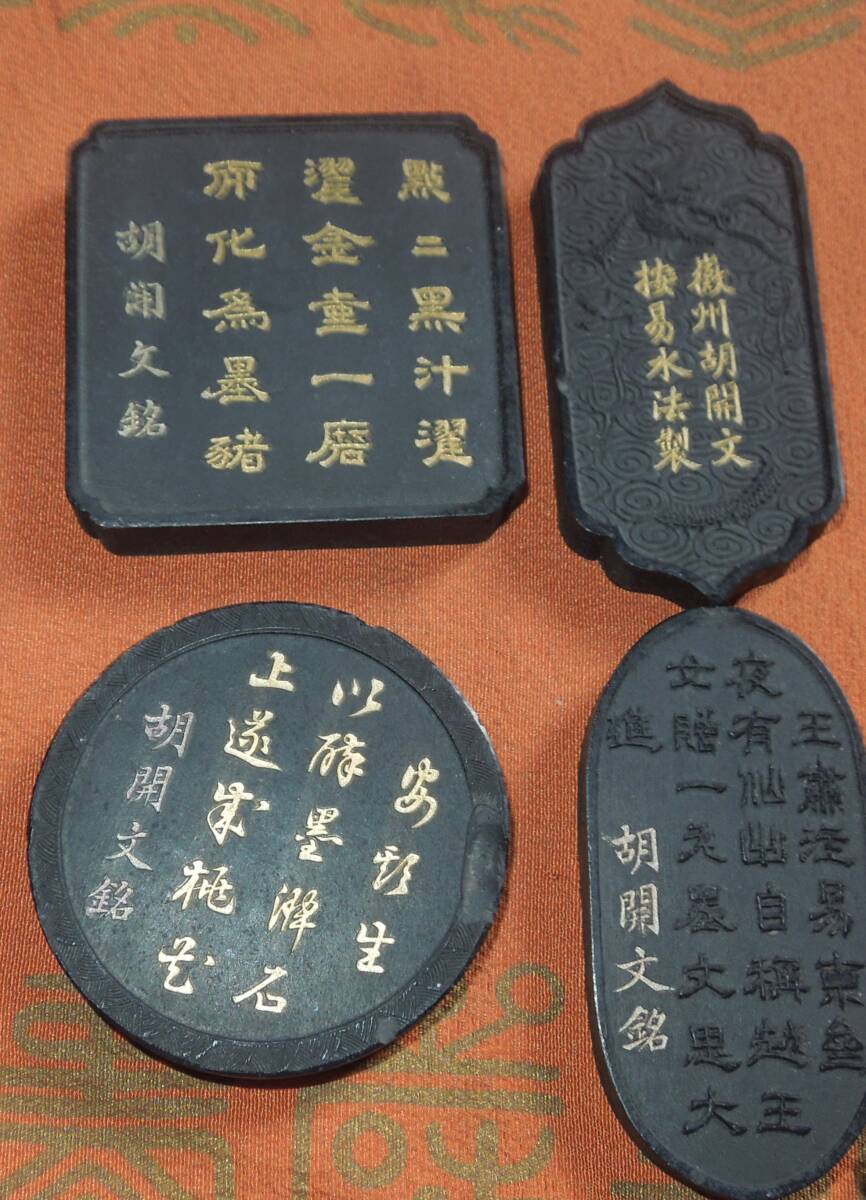 點二黑汁濯
濯金童一磨
師化為墨豬
胡開文銘
徽州胡開文
按易水法製
安期生
以醉墨灑石
上遂成桃花
胡開文銘
王肅注易東壘
夜有仙幽自稱越王
女贈一丸墨文思大
進
胡開文銘